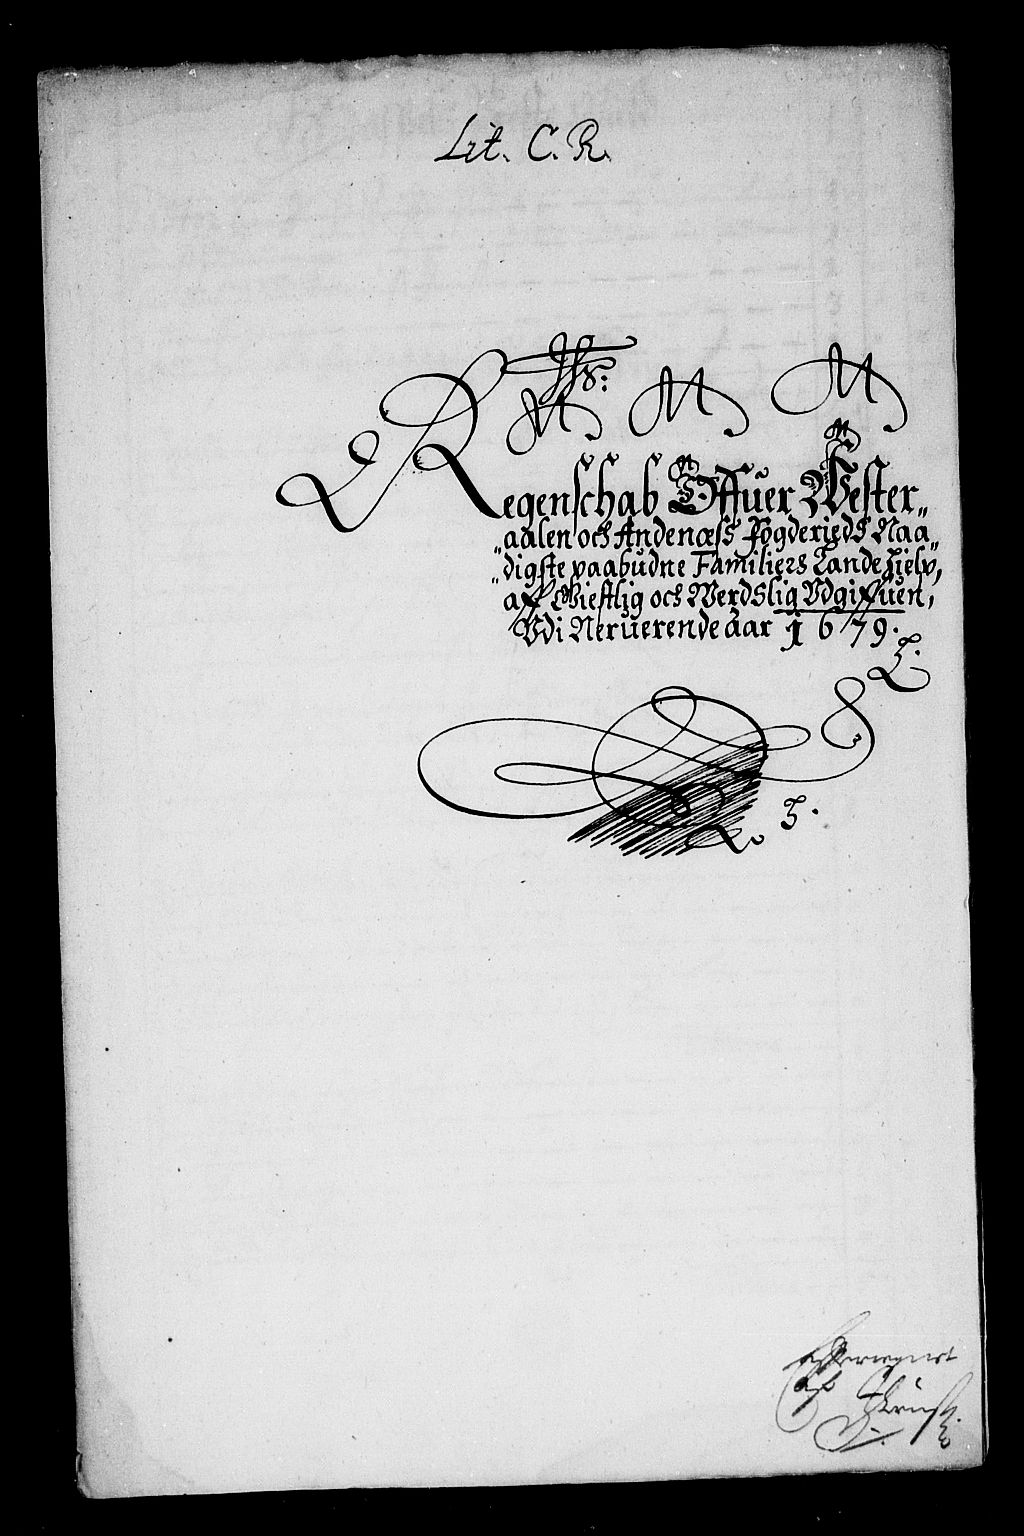 Lit. C. R.
Regenschab Offuer Wester„
„aalen och Andenæss Fogderieds Naa„
„digste paabudne Familiers Landehielp,
aff Giestlig och Werdslig Udgiffuen,
Udi Neruerende aar 1679.